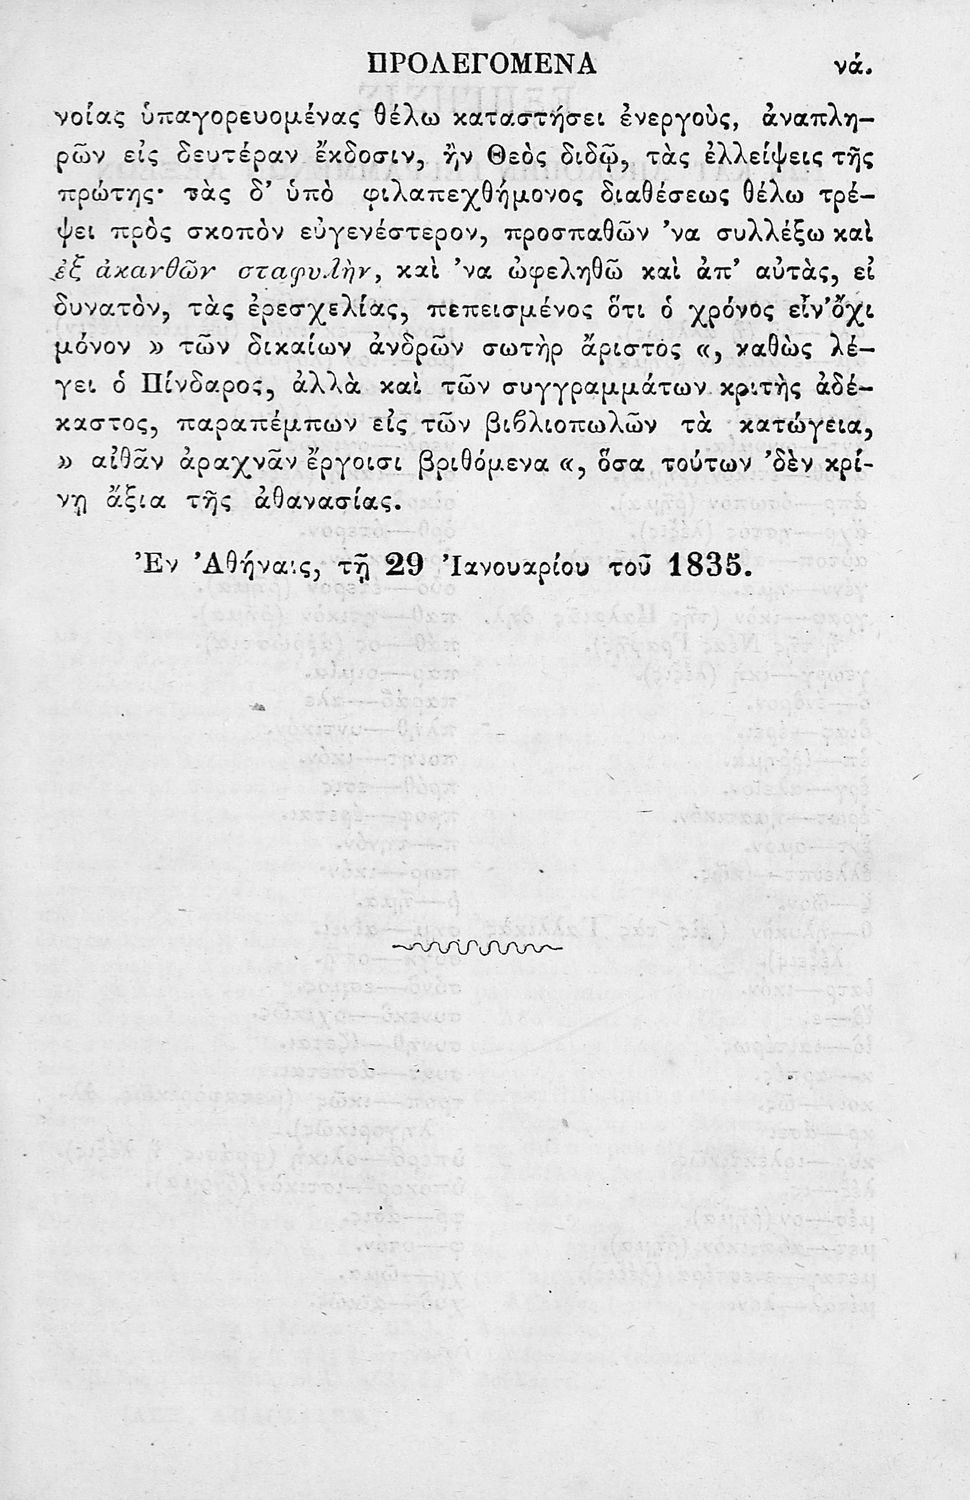 ΠΡΟΛΕΓΟΜΕΝΑ νά.
νοίας ὑπαγορευομένας θέλω καταστήσει ἐνεργοὺς, ἀναπλη-
ρῶν εἰς δευτέραν ἔκδοσιν, ἢν Θεὸς διδῷ, τὰς ἐλλείψεις τῆς
πρώτης· τὰς δ' ὑπὸ φιλαπεχθήμονος διαθέσεως θέλω τρέ-
ψει πρὸς σκοπὸν εὐγενέστερον, προσπαθῶν 'να συλλέξω καὶ
ἐξ ἀκανθῶν σταφυλὴν, καὶ 'να ὠφεληθῶ καὶ ἀπ' αὐτὰς, εἰ
δυνατὸν, τὰς ἐρεσχελίας, πεπεισμένος ὅτι ὁ χρόνος εἶν' ὄχι
μόνον » τῶν δικαίων ἀνδρῶν σωτὴρ ἄριστος «, καθὼς λέ-
γει ὁ Πίνδαρος, ἀλλὰ καὶ τῶν συγγραμμάτων κριτὴς ἀδέ-
καστος, παραπέμπων εἰς τῶν βιβλιοπωλῶν τὰ κατώγεια,
» αἰθᾶν ἀραχνᾶν ἔργοισι βριθόμενα «, ὅσα τούτων 'δὲν κρί-
νῃ ἄξια τῆς ἀθανασίας.
Ἐν Ἀθήναις, τῇ 29 Ἰανουαρίου τοῦ 1835.